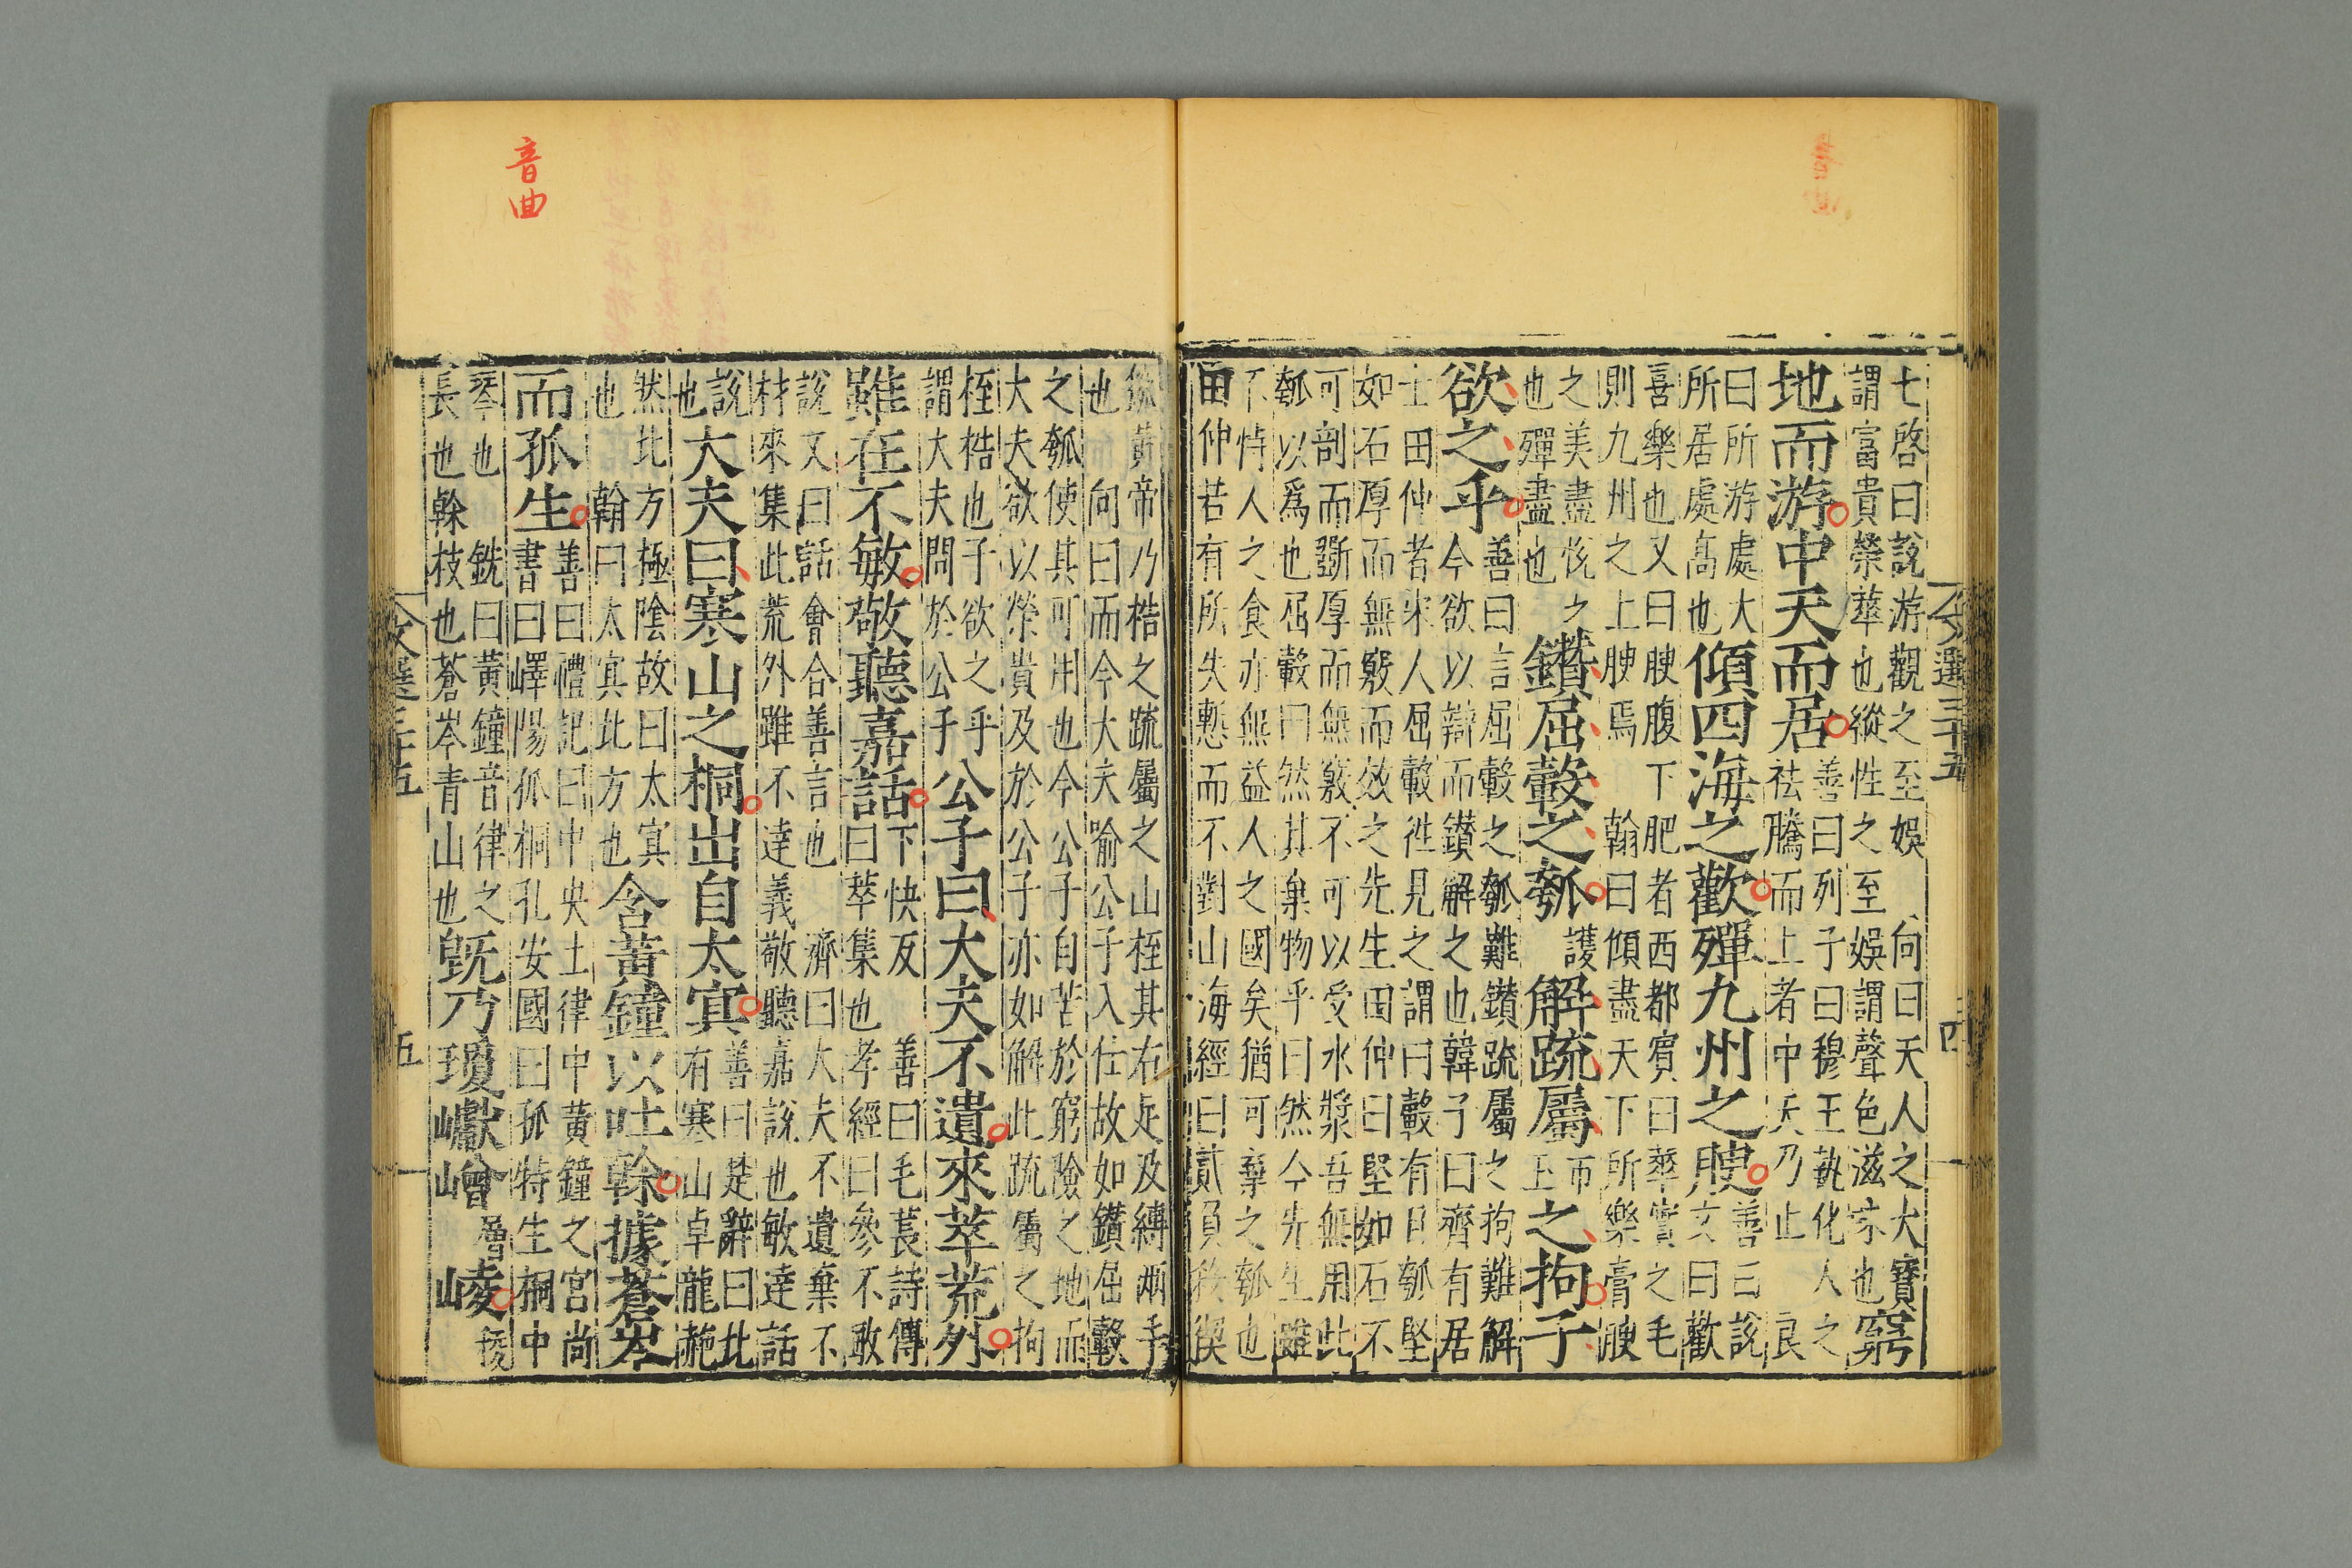 七啓曰說游觀之至娛　向曰天人之大寶窮
謂富貴榮華也縱性之至娛謂聲色滋味也
地而游中天而居善曰列子曰穆王執化人之
祛騰而上者中天乃止　良
曰所游處大
所居處高也傾四海之歡殫九州之腴善曰說
文曰歡
喜樂也又曰腴腹下肥者西都賓曰華實之毛
則九州之上腴焉　翰曰傾盡天下所樂膏腴
之美盡悅之
也殫盡也鑽屈轂之瓠護解疏屬之玉市之拘子
欲之乎善曰言屈轂之瓠難鑽疏屬之拘難解
今欲以辯而鑽解之也韓子曰齊有居
士田仲者宋人屈轂往見之謂曰轂有巨瓠堅
如石厚而無竅而效之先生田仲曰堅如石不
可剖而斲厚而無竅不可以受水漿吾無用此
瓠以爲也屈轂曰然其棄物乎曰然今先生雖
不恃人之食亦無益人之國矣猶可棄之瓠也
田仲若有所失慙而不對山海經曰貳負殺猰
窳黃帝乃梏之疏屬之山桎其右足及縛兩手
也　向曰而今大夫喻公子入仕故如鑽屈轂
之瓠使其可用也今公子自苦於窮險之地而
大夫欲以榮貴及於公子亦如解此疏屬之拘
桎梏也子欲之乎
謂大夫問於公子公子曰大夫不遺來萃荒外
雖在不敏敬聽嘉話下快反　善曰毛萇詩傳
曰萃集也孝經曰參不敢
說文曰話會合善言也　濟曰大夫不遺棄不
材來集此荒外雖不達義敬聽嘉說也敏達話
說
也大夫曰寒山之桐出自太冥善曰楚辭曰北
有寒山卓龍赩
然比方極陰故曰太冥
也　翰曰太冥北方也含黃鐘以吐榦據蒼岑
而孤生善曰禮記曰中央土律中黃鐘之宮尚
書曰嶧陽孤桐孔安國曰孤特生桐中
琴也　銑曰黃鐘音律之
長也榦枝也蒼岑青山也既乃瓊巘嶒層崚稜
文選三十五
四
文選三十五
五
音曲